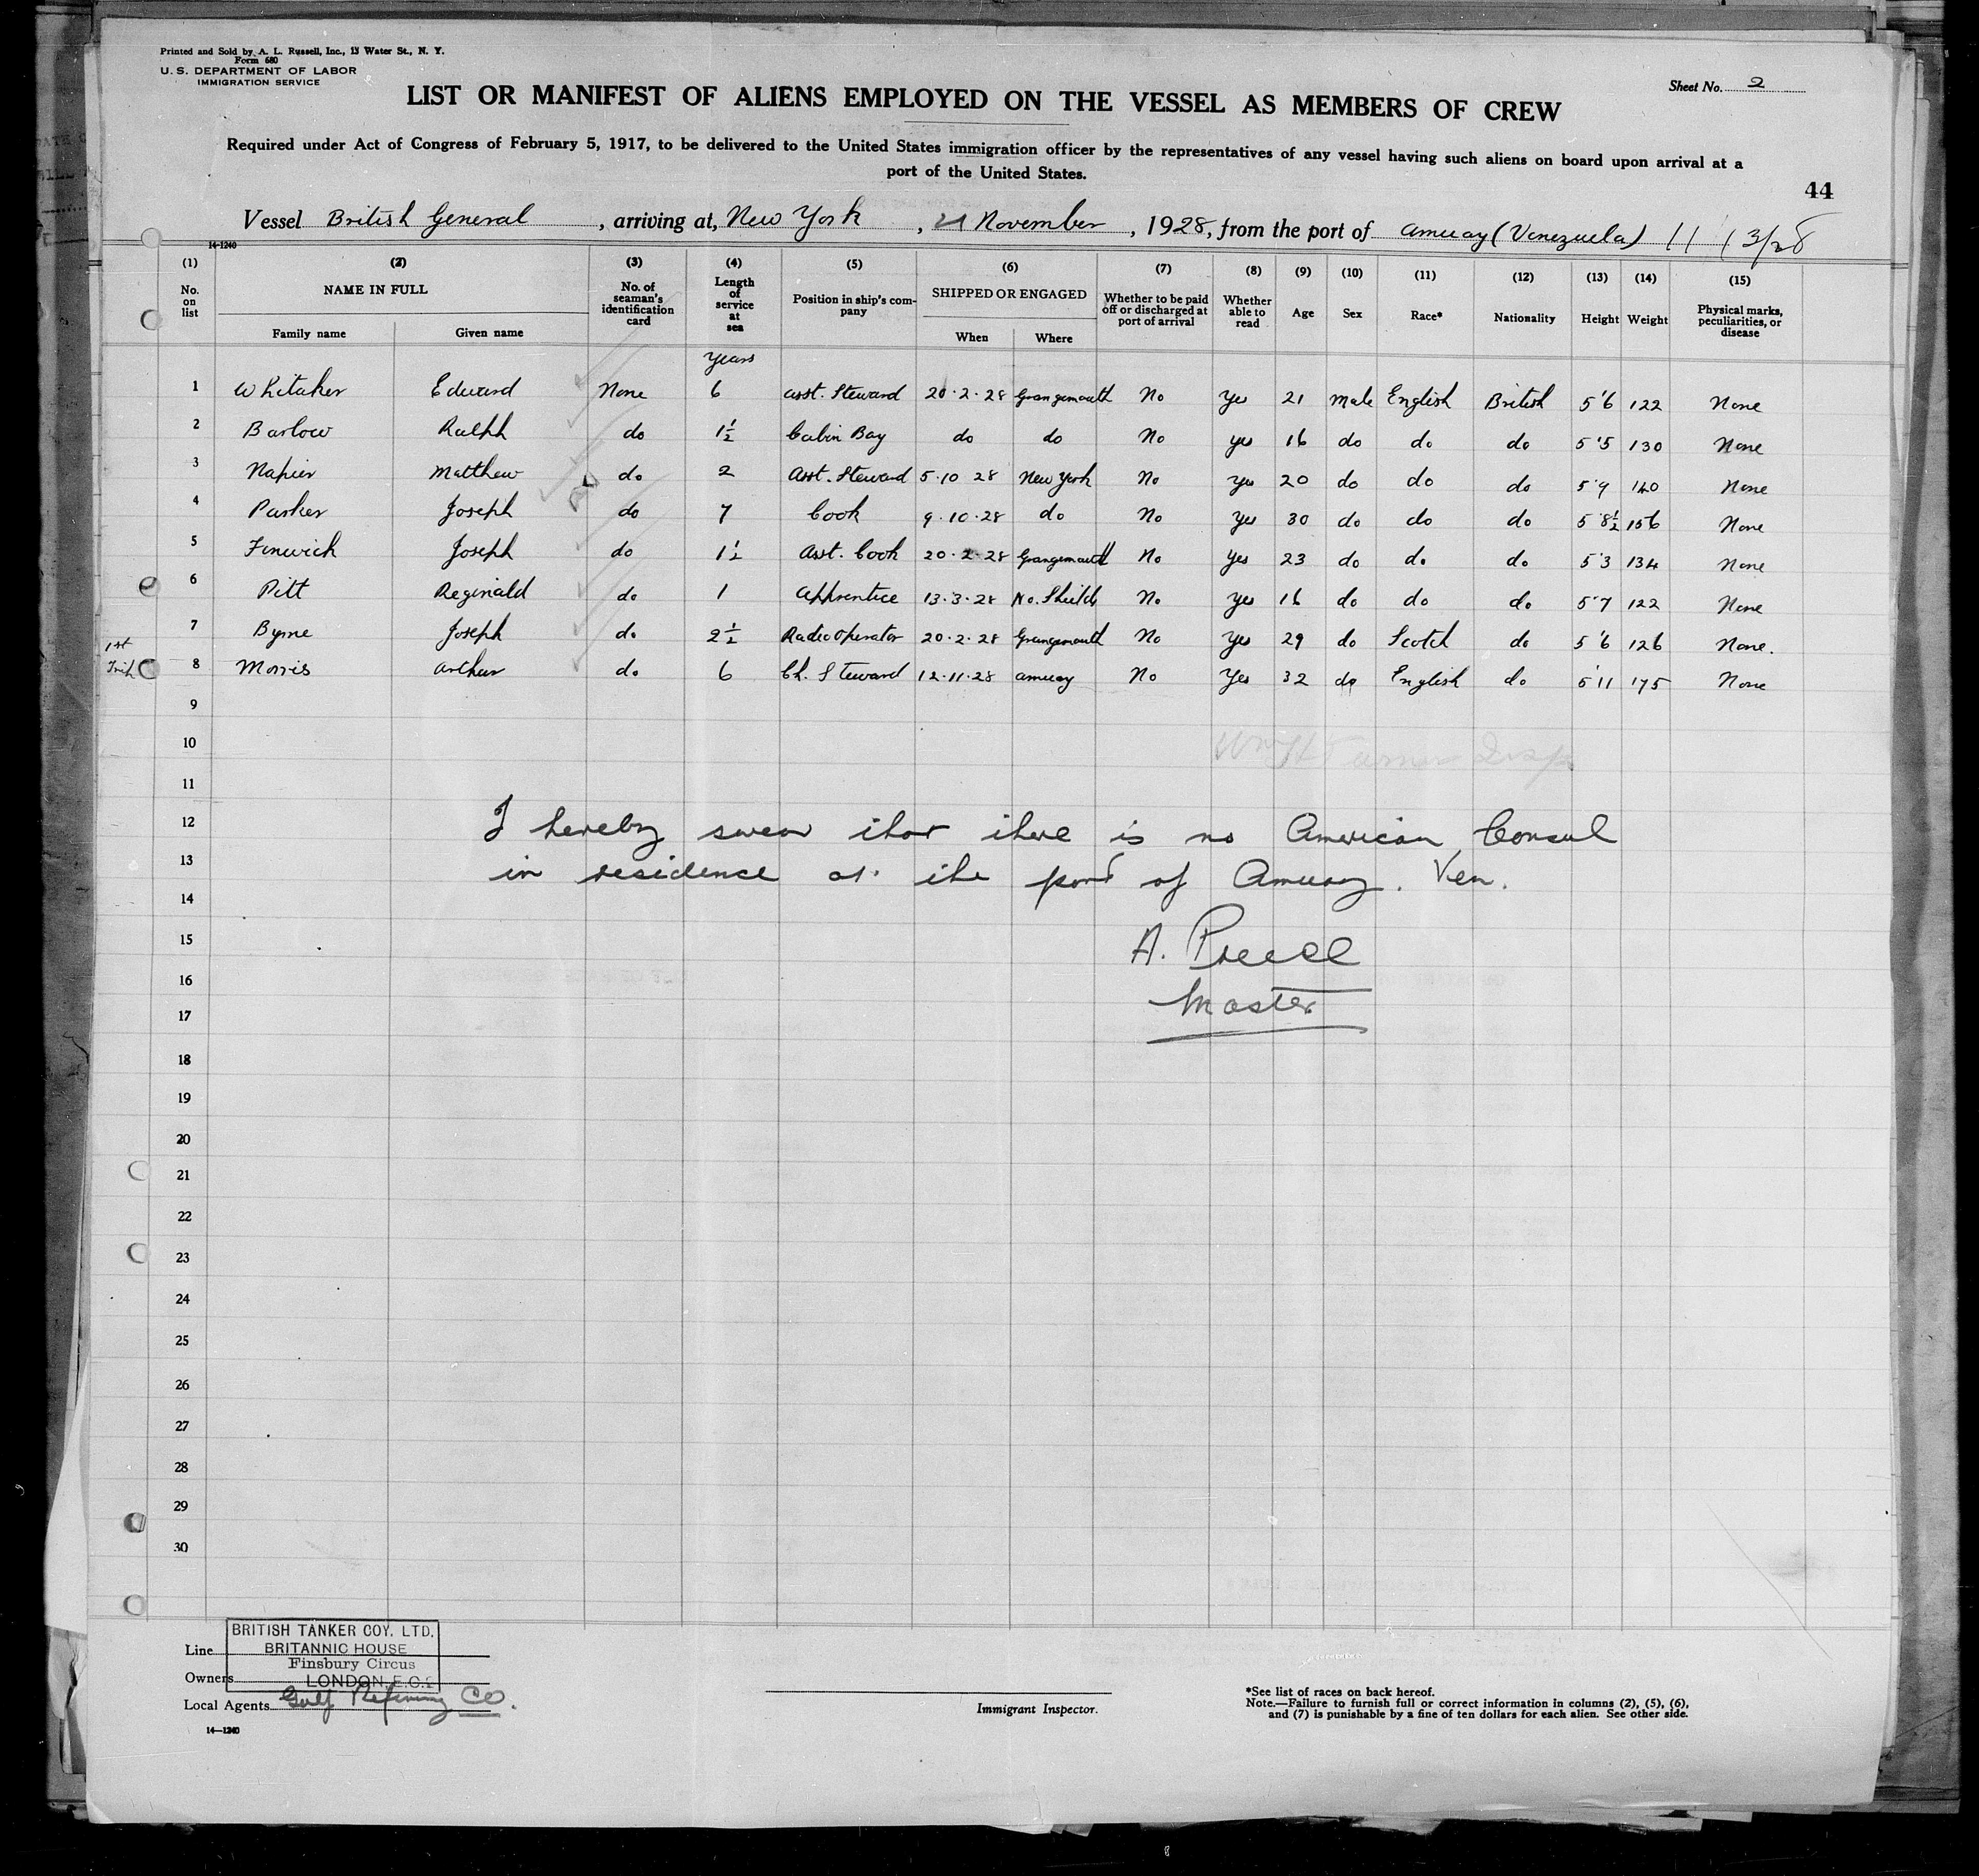 Printed and Sold by A. L. Russell, Inc., 13 Water St., N. Y.
Form 680
U. S. DEPARTMENT OF LABOR
IMMIGRATION SERVICE
Sheet No. 2
LIST OR MANIFEST OF ALIENS EMPLOYED ON THE VESSEL AS MEMBERS OF CREW
Required under Act of Congress of February 5, 1917, to be delivered to the United States immigration officer by the representatives of any vessel having such aliens on board upon arrival at a
port of the United States.
44
Vessel British General, arriving at, New York, 21 November, 1928, from the port of Amuay (Venezuela)
14-1240
(1) (2) (3) (4) (5) (6) (7) (8) (9) (10) (11) (12) (13) (14) (15)
No. on list
NAME IN FULL
Family name Given name
No. of seaman's identification card
Length of service at sea
Position in ship's company
SHIPPED OR ENGAGED
When Where
Whether to be paid off or discharged at port of arrival
Whether able to read
Age Sex Race* Nationality Height Weight
Physical marks, peculiarities, or disease
Years
1 Whitaker Edward None 6 Asst. Steward 20.2.28 Grangemouth No Yes 21 Male English British 5'6 122 None
2 Barlow Ralph do 1½ Cabin Boy do do No Yes 16 do do do 5'5 130 None
3 Napier Matthew do 2 Asst. Steward 5.10 28 New York No Yes 20 do do do 5'9 140 None
4 Parker Joseph do 7 Cook 9.10.28 do No Yes 30 do do do 5'8½ 156 None
5 Fenwick Joseph do 1½ Asst. Cook 20.2.28 Grangemouth No Yes 23 do do do 5'3 134 None
6 Pitt Reginald do 1 Apprentice 13.3.28 No. Shields No Yes 16 do do do 5'7 122 None
7 Byrne Joseph do 2½ Radio Operator 20.2.28 Grangemouth No Yes 29 do Scotch do 5'6 126 None.
1st Trip 8 Morris Arthur do 6 Ch. Steward 12.11.28 Amuay No Yes 32 do English do 5'11 175 None
9
10
11
12 I hereby swear that there is no American Consul
13 in residence at the port of Amuay. Ven.
14
15 A. Preece
16
17 Master
18
19
20
21
22
23
24
25
26
27
28
29
30
BRITISH TANKER COY. LTD.
Line BRITANNIC HOUSE
Finsbury Circus
Owners LONDON, E.C.2
Local Agents Gulf Refining Co.
14—1240
Immigrant Inspector.
*See list of races on back hereof.
Note.—Failure to furnish full or correct information in columns (2), (5), (6),
and (7) is punishable by a fine of ten dollars for each alien. See other side.